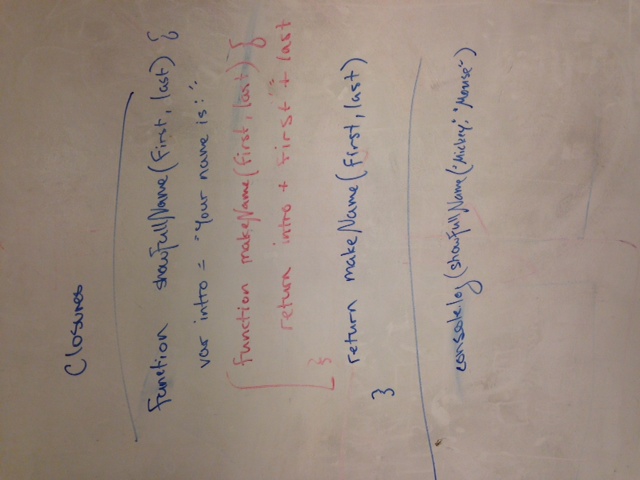 Closures
function showFullName(first, last) {
var intro = "Your name is: "
function makeName(first, last) {
return intro + first " " + last
}
return makeName(first, last)
}
console.log(showFullName("Mickey", "Mouse")